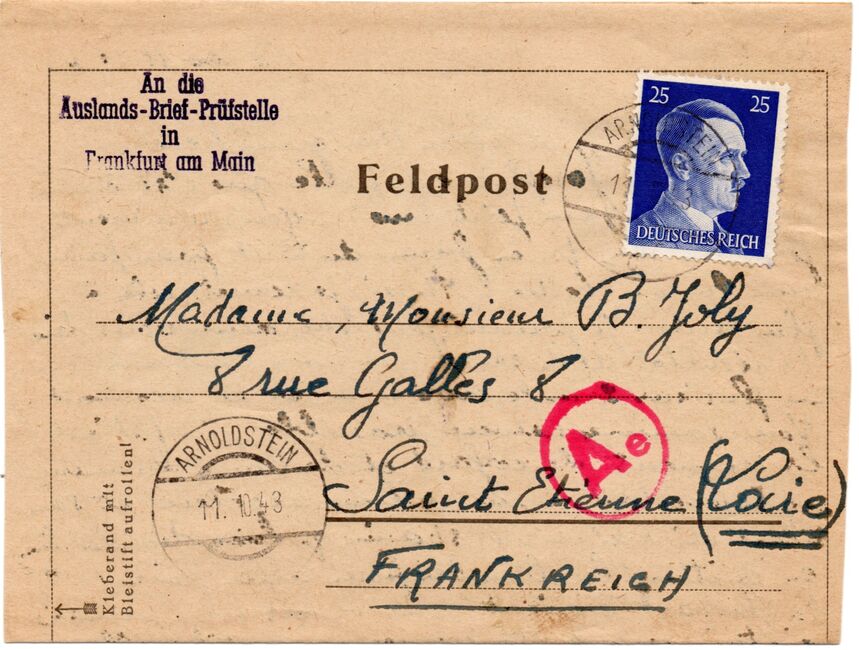 An die
Auslands-Brief-Prüfstelle
in
Frankfurt am Main
Feldpost
25 25
DEUTSCHES REICH
ARNOLDSTEIN
Madame, Monsieur B. Joly
8 rue Gallés 8
Ae
ARNOLDSTEIN
11.10.43
Saint Etienne (Loire)
FRANKREICH
Kleberand mit
Bleistift aufrollen!